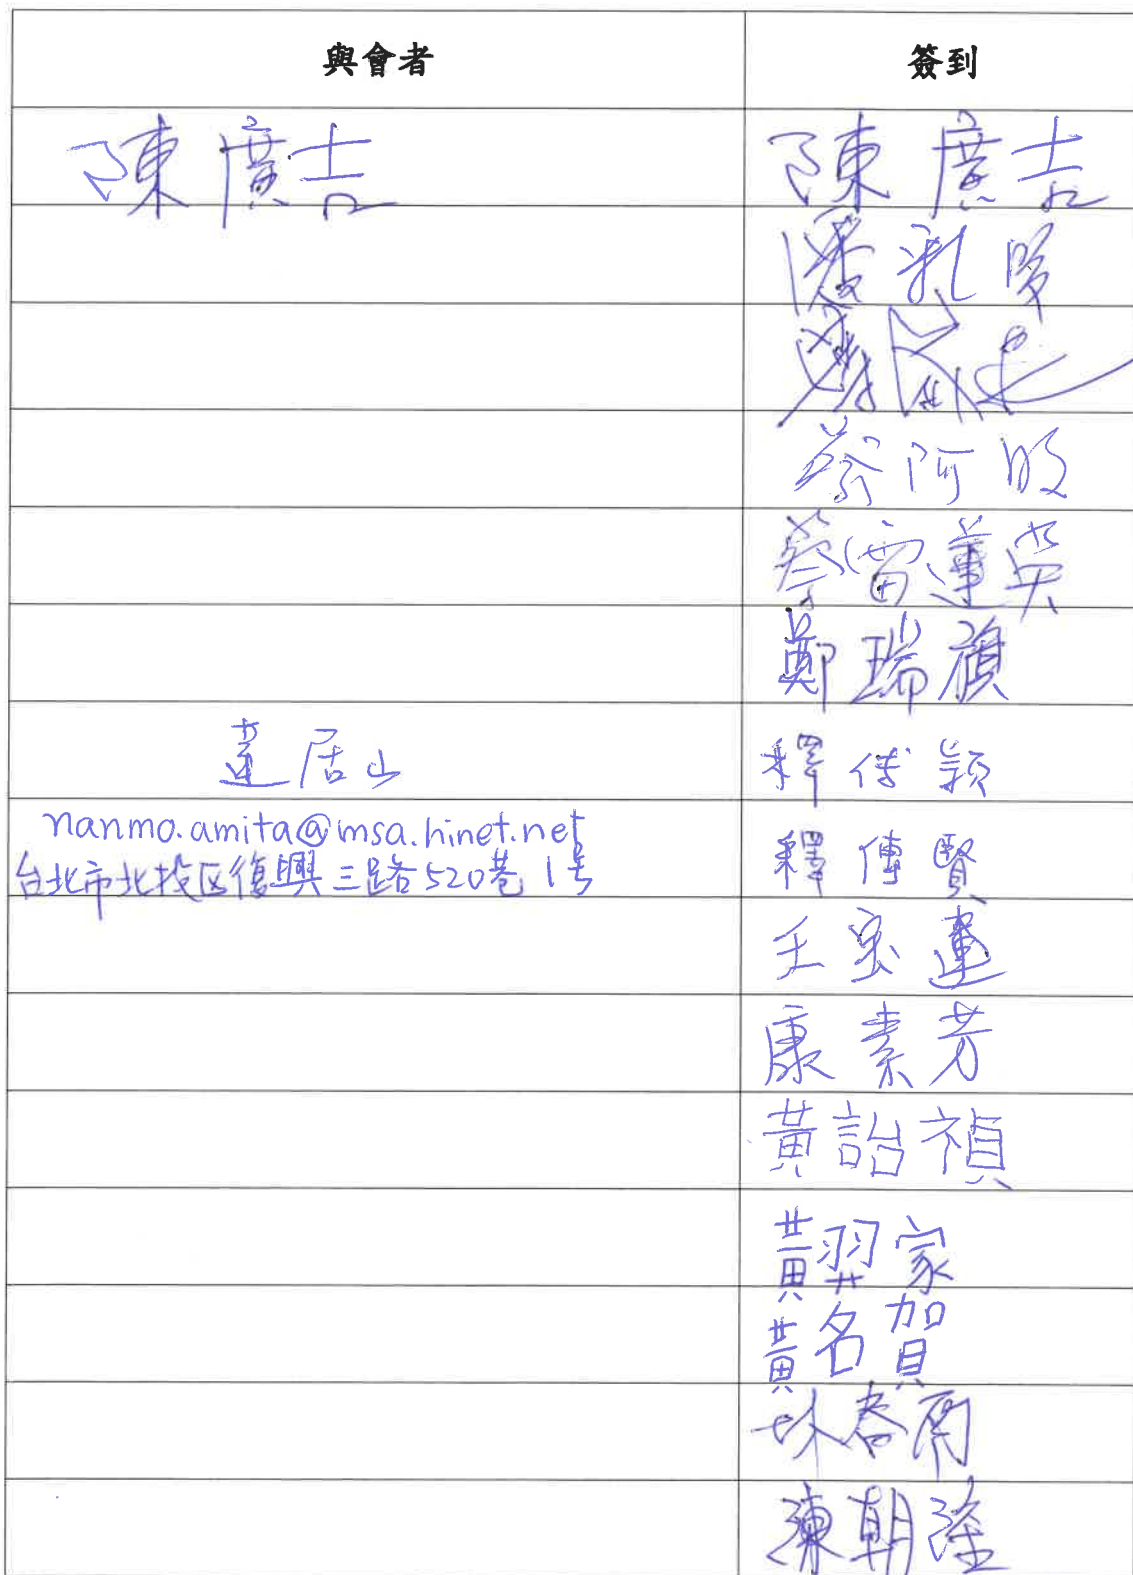 與會者 簽到
陳廣吉 陳廣吉
潘乳
蔡阿
蔡雷蓮英
鄭瑞旗
蓮居山 釋傳穎
nanmo.amita@msa.hinet.net 釋傳賢
台北市北投区復興三路520巷1号
王宝蓮
康素芳
黃詒禎
黃羿家
黃名賀
林春雨
陳朝隆